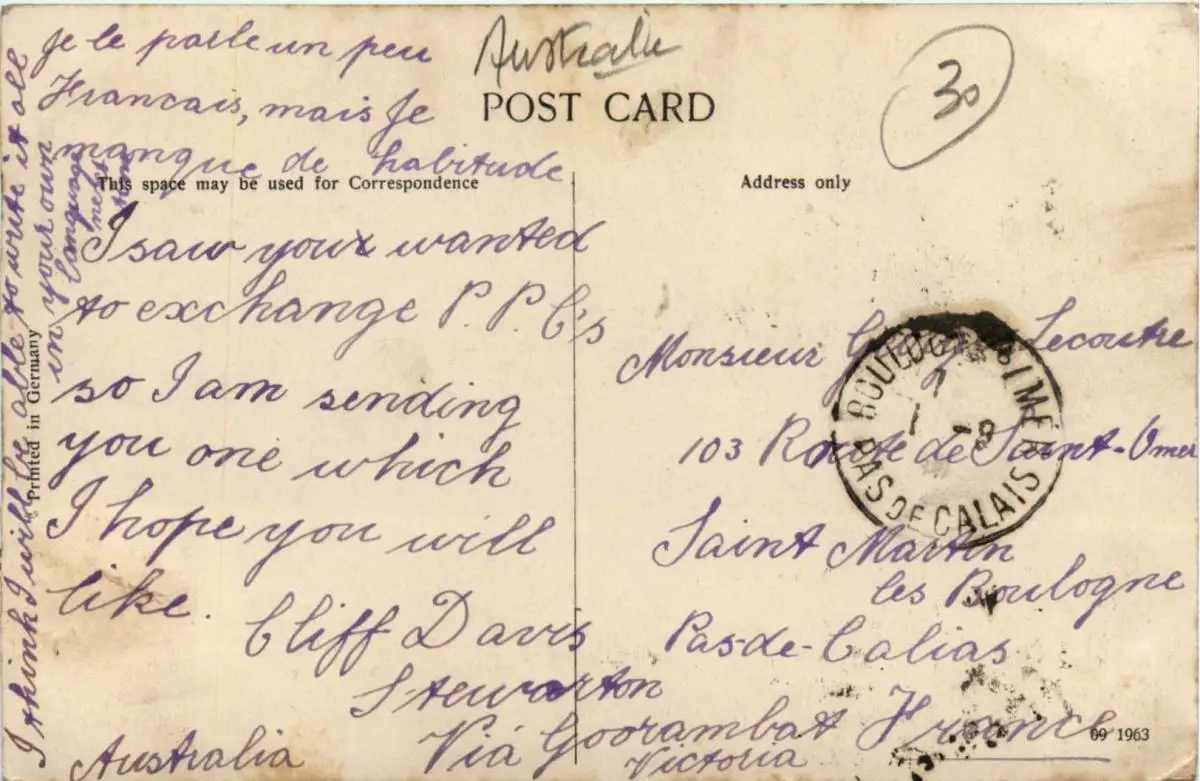 Je le parle un peu
Francais, mais Je
manque de habitude
Australie
POST CARD
30
This space may be used for Correspondence
Address only
I saw you wanted
to exchange P. P. C's
so I am sending
you one which
I hope you will
like.
Cliff Davis
Stewarton
Via Goorambat
Victoria
Australia
I think I will be able to write it all
in your own
language
next
time
Printed in Germany
Monsieur Lecoutre
103 Route de Saint-Omer
Saint Martin
les Boulogne
Pas-de-Calias
France
BOULOGNE
PAS DE CALAIS
09 1963